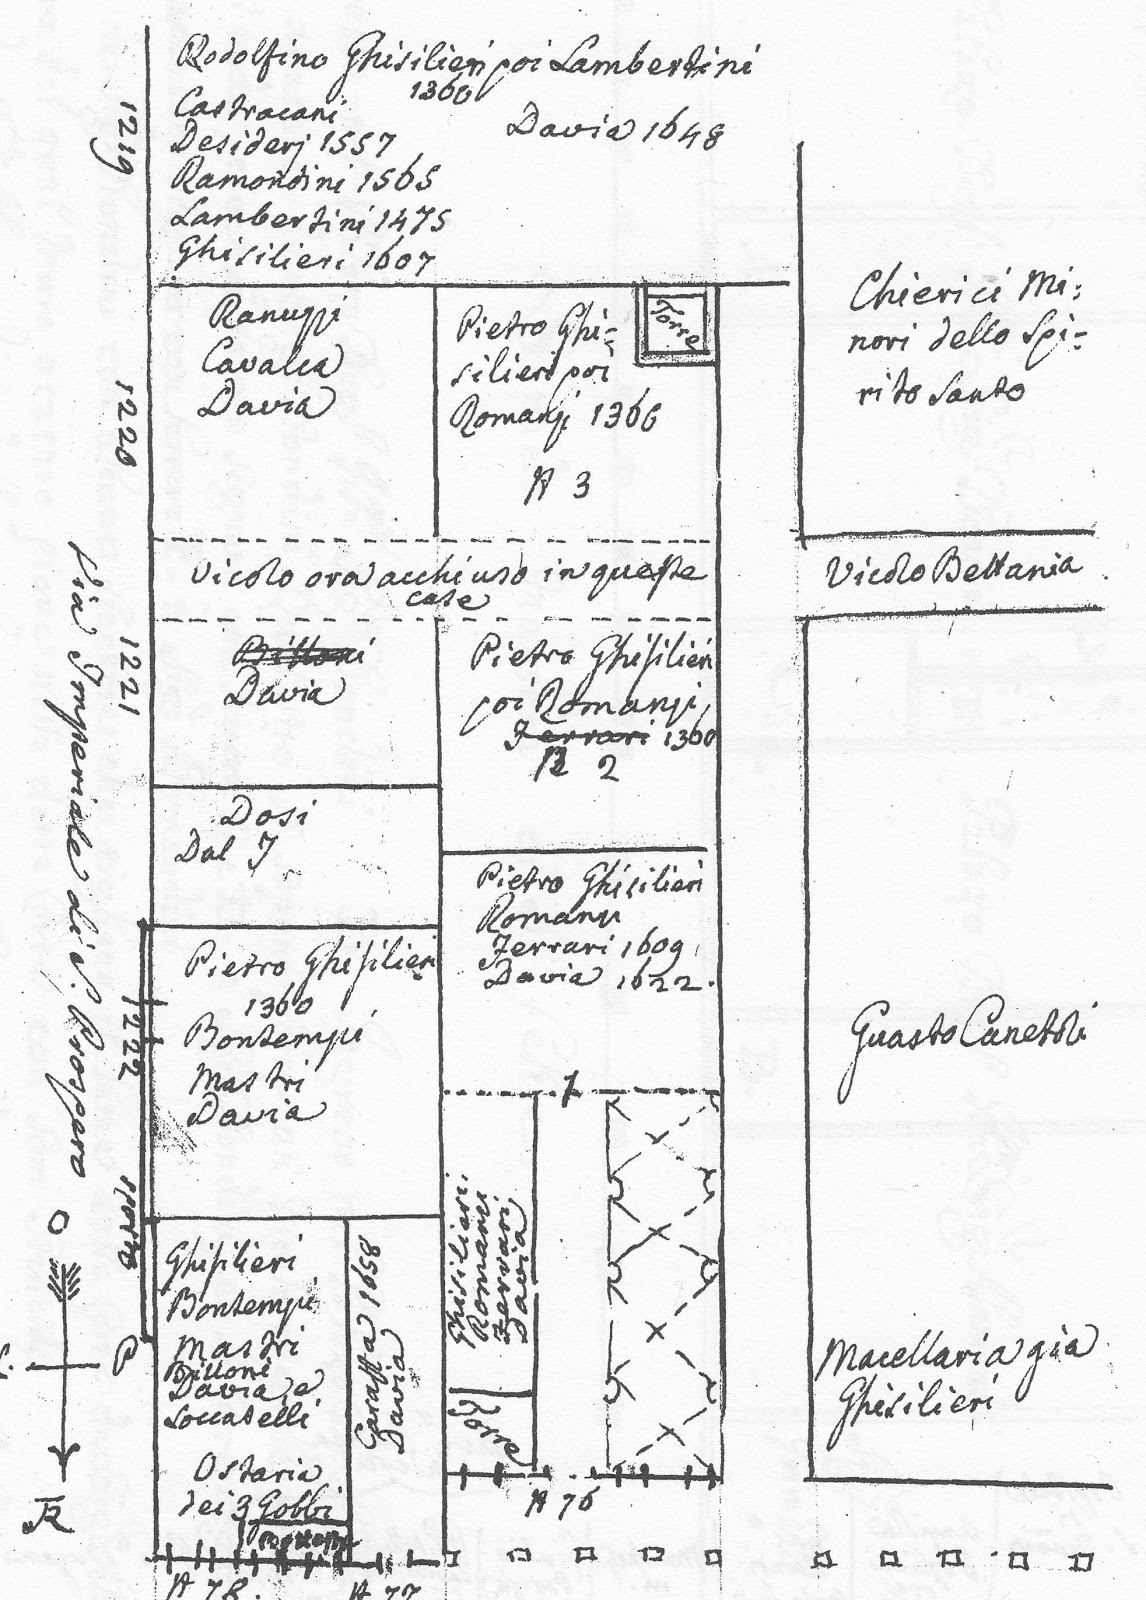 Rodolfino Ghisilieri poi Lambertini
1360
Castracani
Davia 1648
Desiderj 1557
Ramondini 1565
Lambertini 1475
Ghisilieri 1607
1219
Ranuzzi
Cavalca
Davia
Pietro Ghi=
silieri poi
Romanzi 1366
N 3
Torre
Chierici Mi:
nori dello Spi=
rito Santo
1220
Vicolo ora acchiuso in queste
case
Vicolo Bettania
Via Imperiale di S. Prospero
1221
Bittoni
Davia
Pietro Ghisilieri
poi Romanzi,
Ferrari 1360
N 2
Dosi
Dal J
Pietro Ghisilieri
Romanzi
Ferrari 1609
Davia 1622.
Pietro Ghisilieri
1360
Bontempi
Mastri
Davia
1222
Guasto Canetoli
1
sporto
Ghisilieri
Bontempi
Mastri
Bittoni
Davia, e
Soccatelli
Ostaria
dei 3 Gobbi
Caraffa 1658
Davia
Ghisilieri.
Romanzi
Ferrari
Davia
Torre
Macellaria gia
Ghisilieri
O
P
N 76
N 78.
N 77